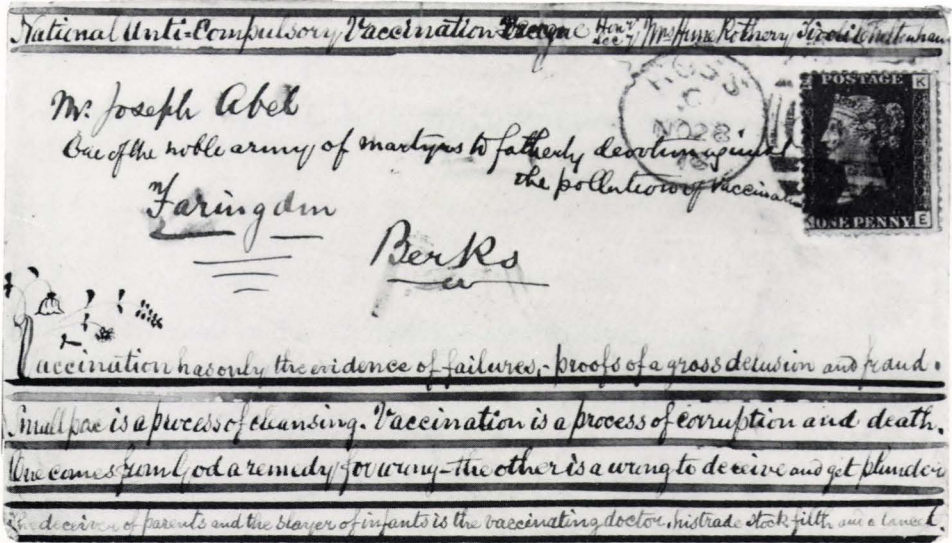 National Anti-Compulsory Vaccination League Hon. Sec. Mrs Hume Rothery Tivoli Cheltenham
ROSS
C
NO 28
POSTAGE
K
Mr. Joseph Abel
One of the noble army of martyrs to fatherly devotion against
the pollution of Vaccination
ONE PENNY
E
Faringdon
Berks
Vaccination has only the evidence of failures, - proofs of a gross delusion and fraud.
Small pox is a process of cleansing. Vaccination is a process of corruption and death.
One comes from God a remedy for wrong - the other is a wrong to deceive and get plunder
The deceiver of parents and the slayer of infants is the vaccinating doctor, his trade stock filth and a lancet.